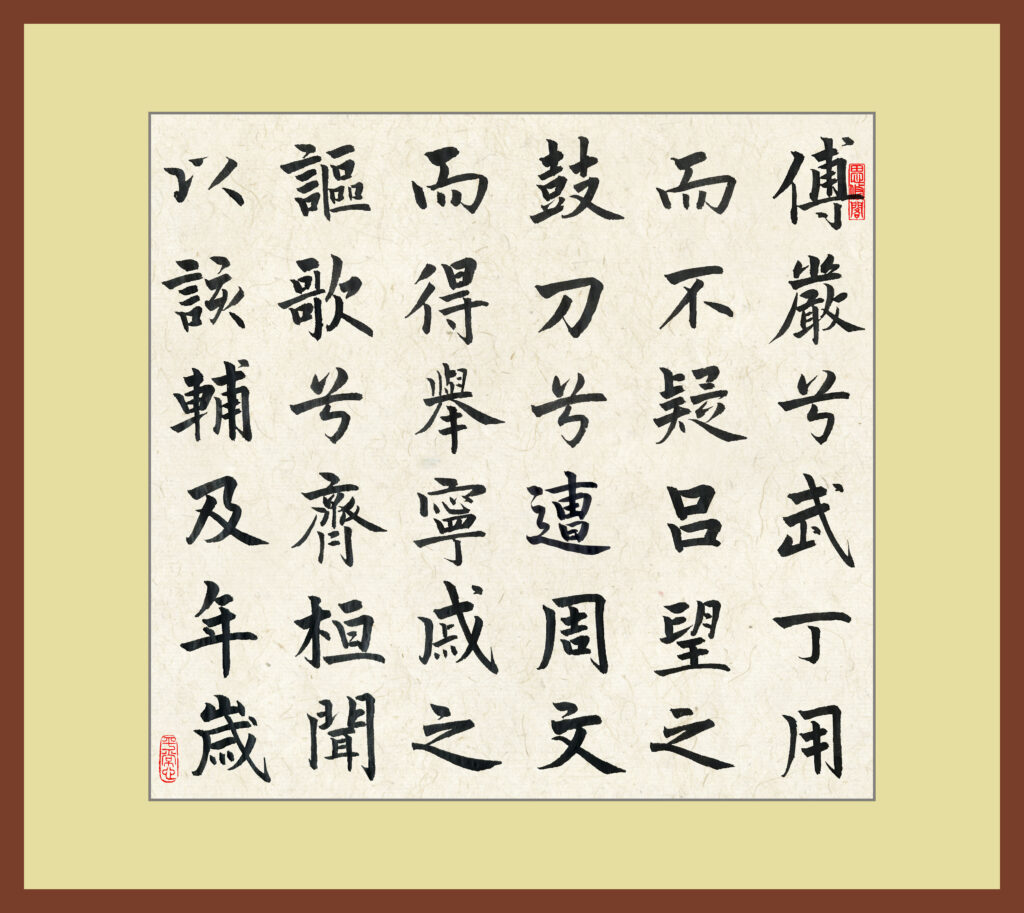 傅嚴兮武丁用
而不疑呂望之
鼓刀兮遭周文
而得舉寧戚之
謳歌兮齊桓聞
以該輔及年歲